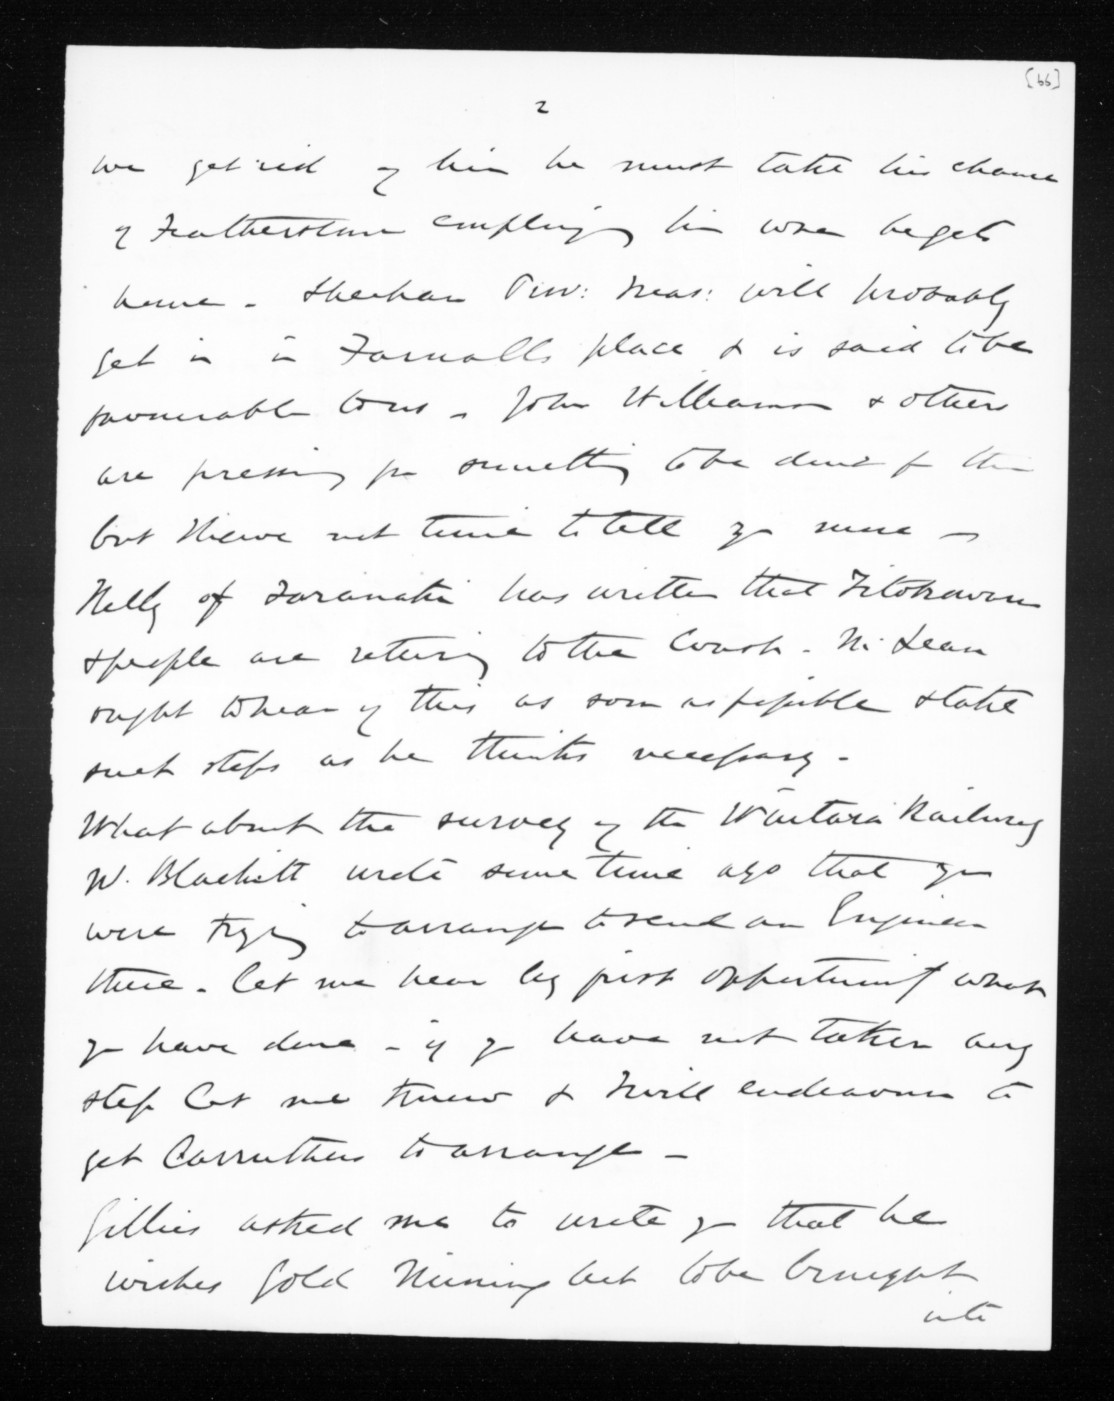 [66]
2
we get rid of him he must take his chance
of Featherston employing him when he gets
home - Sheehan Prov: Treas: will probably
get in in Farnalls place & is said to be
favourable to us - John Williamson & others
are pressing for something to be done for him
but I have not time to tell you more -
Kelly of Taranaki has written that Titokowaru
& people are returning to the Coast - McLean
ought to hear of this as soon as possible & take
such steps as he thinks necessary -
What about the survey of the Waitara Railway
W. Blackett wrote some time ago that you
were trying to arrange to send an Engineer
there - Let me hear by first opportunity what
you have done - if you have not taken any
step let me know & I will endeavour to
get Carruthers to arrange -
Gillies asked me to write you that he
wishes Gold Mining act to be brought
into